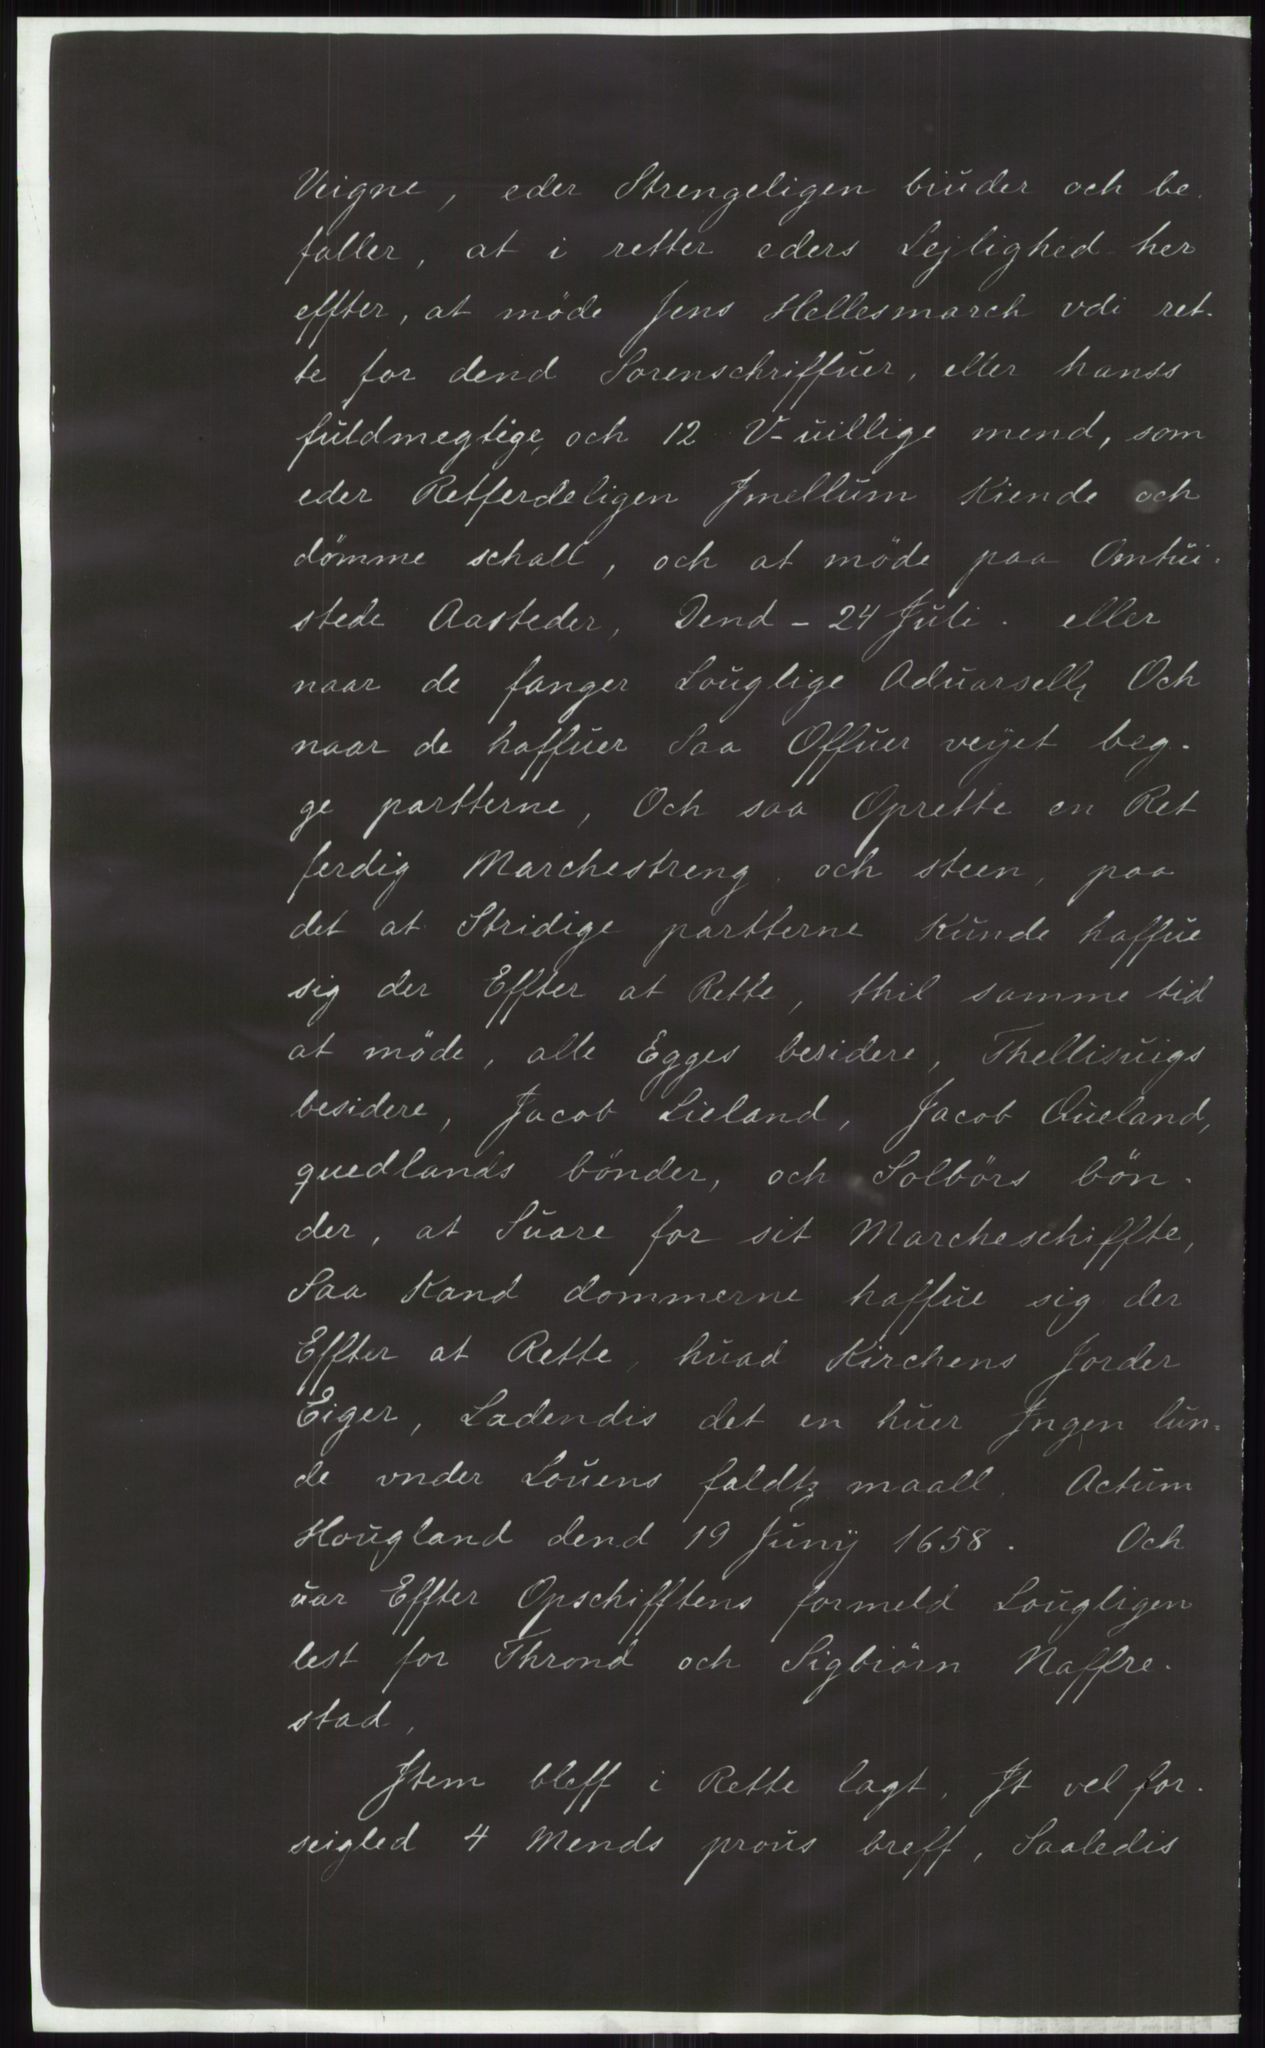 Veigne, eder Strengeligen biuder och be.
faller, at i retter eders Lejlighed her
effter, at möde Jens Hellesmarch vdi ret.
te for dend Sorenschriffuer, eller hanss
fuldmegtige, och 12 V-uillige mend, som
eder Retferdeligen Jmellum Kiende och
dömme schall, och at möde paa Omtui.
stede Aasteder, Dend - 24 Juli. eller
naar de fanger Louglige Aduarsell, Och
naar de haffuer Saa Offuer veyet beg.
ge partterne, Och saa Oprette en Ret
ferdig Marchestreng, och steen, paa
det at Stridige partterne Kunde haffue
sig der Effter at Rette, thil samme tid
at möde, alle Egges besidere, Thellisuigs
besidere, Jacob Lieland, Jacob Queland,
quedlands bönder, och Solbörs bön.
der, at Suare for sit Marcheschiffte,
Saa Kand dommerne haffue sig der
Effter at Rette, huad Kirchens Jorder
Eiger, Ladendis det en huer Jngen lun=
de vnder Louens faldtz maall. Actum
Hougland dend 19 Junÿ 1658. Och
uar Effter Opschifftens formeld Lougligen
lest for Thrond och Sigbiörn Naffre.
stad,
Jtem bleff i Rette lagt, Jt vel for.
seigled 4 Mends prous breff, Saaledis